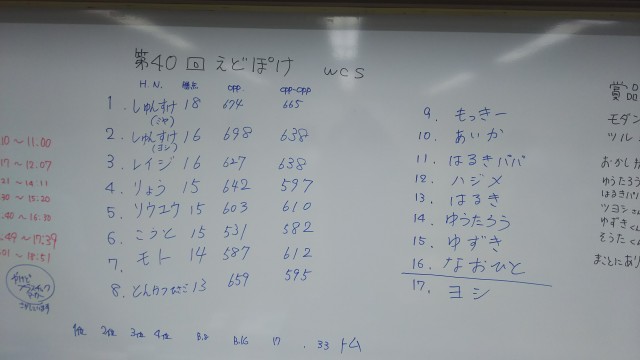 第40回 えどぽけ WCS
H.N. 勝点 opp. opp-opp
1. しゅんすけ 18 674 665
(ミヤ)
2. しゅんすけ 16 698 638
(ヨシ)
3. レイジ 16 627 638
4. りょう 15 642 597
5. ソウユウ 15 603 610
6. こうと 15 531 582
7. モト 14 587 612
8. 13 659 595
9. もっきー
10. あいか
11. はるきパパ
12. ハジメ
13. はるき
14. ゆうたろう
15. ゆずき
16. なおひと
17. ヨシ
1位 2位 3位 4位 B.8 B.16 17 . 33 トム
賞品
モダン
ツル
おかした
ゆうたろう
はるきパパ
ツヨシさん
ゆずきくん
そうたくん
まことにあり
10~11.00
17~12.07
21~14:11
30~15:20
.40~16:30
.49~17:39
.01~18:51